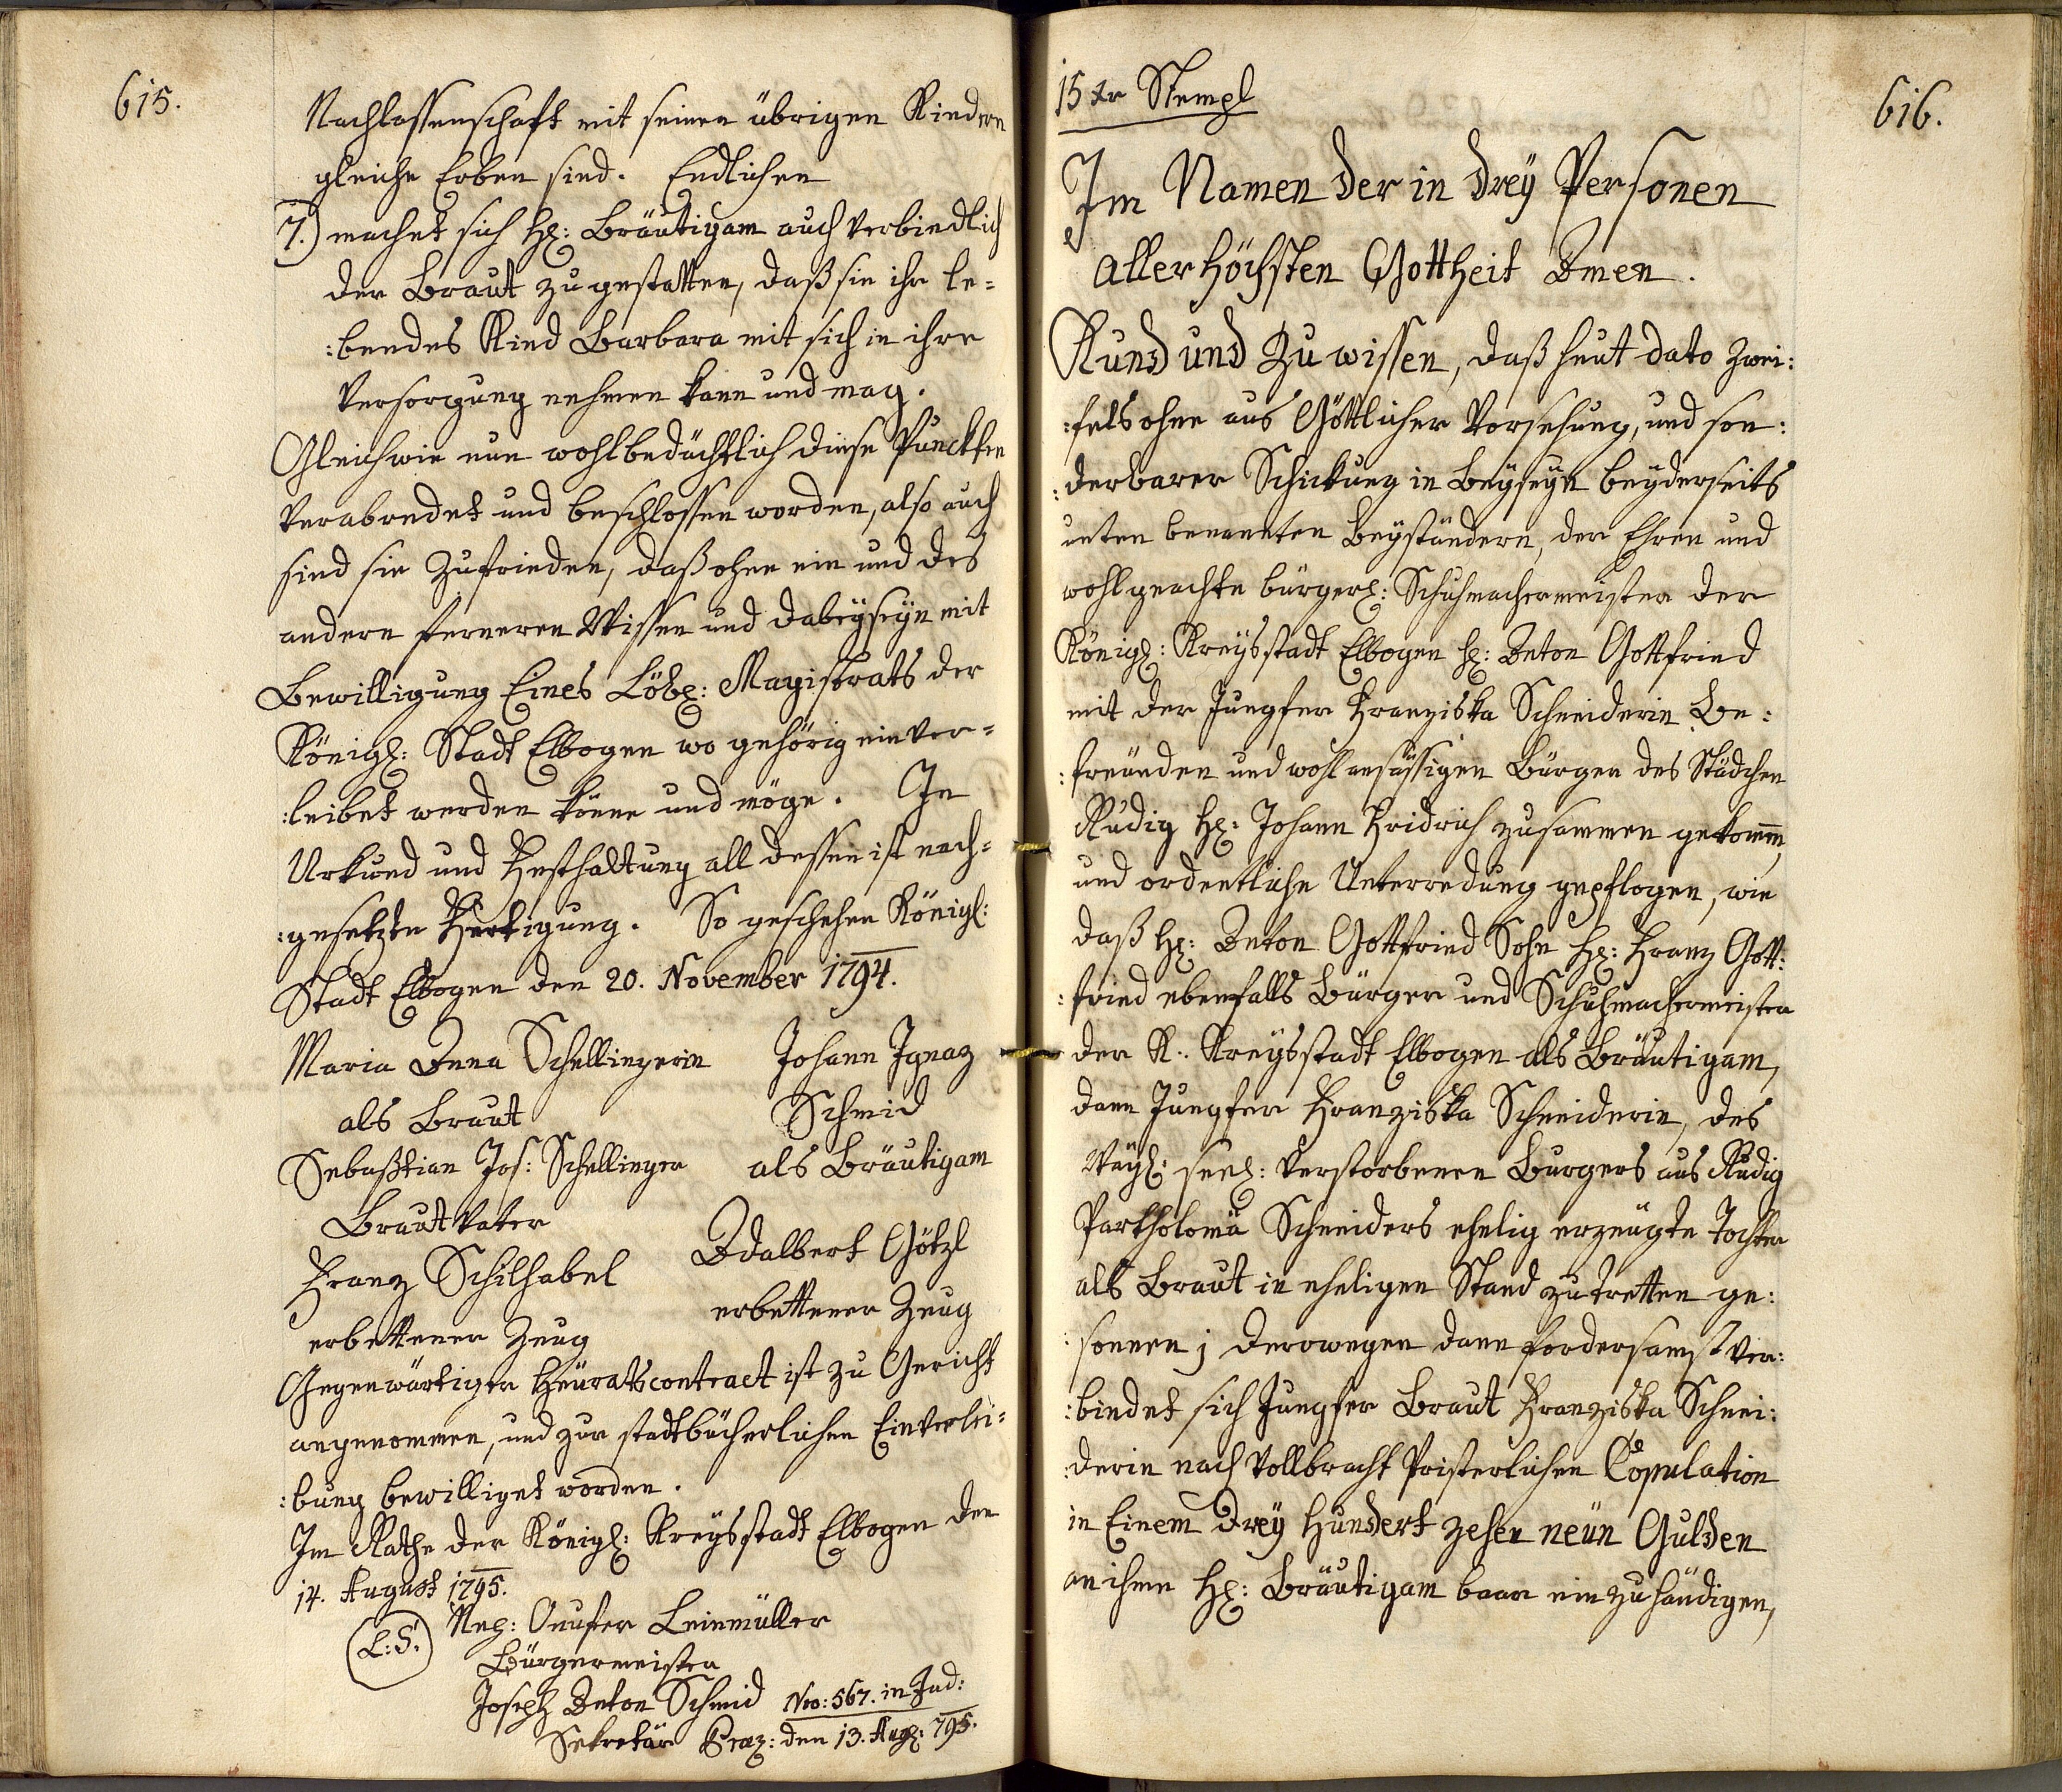 615.
Nachlassenschaft mit seinen übrigen Kindern
gleiche Erben sind. Endlichen
7.) machet sich H: Bräutigam auch verbiendlich
der Braut zu gestatten, daß sie ihr le=
:bendes Kind Barbara mit sich in ihre
Versorgung nehmen kann und mag.
Gleichwie nun wohlbedächtlich diese Punckten
verabredet und beschlossen worden, also auch
sind sie zufrieden, daß ohne ein und des
andern ferneren Wissen und dabeyseyn mit
Bewilligung Eines Löbl: Magistrats der
Königl: Stadt Elbogen wo gehörig einver=
:leibet werden könne und möge. In
Urkund und Festhaltung all dessen ist nach=
:gesetzte Fertigung. So geschehen Königl:
Stadt Elbogen den 20. November 1794.
Maria Anna Schellingerin
als Braut
Sebastian Jos: Schellinger
Brautvater
Franz Schilhabel
erbettener Zeug
Johann Ignaz
Schmid
als Bräutigam
Adalbert Götzl
erbettener Zeug
Gegenwärtiger Heüratscontract ist zu Gericht
angenommen, und zur stadtbücherlichen Einverlei=
:bung bewilliget worden.
Im Rathe der Königl: Kreysstadt Elbogen den
14. August 1795.
L: S. Onufer Leinmüller
Bürgermeister
Joseph Anton Schmid Nro: 567. in Jud:
Sekretär Praes: den 13. Aug: 795.
616.
15 xr Stempl
Im Namen der in drey Personen
allerhöchsten Gottheit Amen.
Kund und zu wissen, daß heut dato zwei:
:felsohne aus Göttlicher Vorsehung, und son:
:derbarer Schickung in Beyseyn beyderseits
unten benannten Beyständern, der Ehren und
wohlgeachte bürgerl: Schuhmachermeister der
Königl: Kreysstadt Elbogen H: Anton Gottfried
mit der Jungfer Franziska Schneiderin Be:
:freünden und wohl ansässigen Bürgen des Städchen
Rudig H: Johann Fridrich zusammen gekomm,
und ordentliche Unterredung gepflogen, wie
daß H: Anton Gottfried Sohn H: Franz Gott:
:fried ebenfalls Bürger und Schuhmachermeister
der K: Kreysstadt Elbogen als Bräutigam,
dann Jungfer Franziska Schneiderin, des
Weyl: seel: verstorbenen Burgers aus Rudig
Partholomä Schneiders ehelig erzeügte Tochter
als Braut in eheligen Stand zu tretten ge:
:sonnen; derowegen dann fordersamst ver:
:bindet sich Jungfer Braut Franziska Schnei:
:derin nach vollbracht Pristerlichen Copulation
in Einem drey Hundert zehen neün Gulden
an ihme H: Bräutigam baar einzuhändigen,